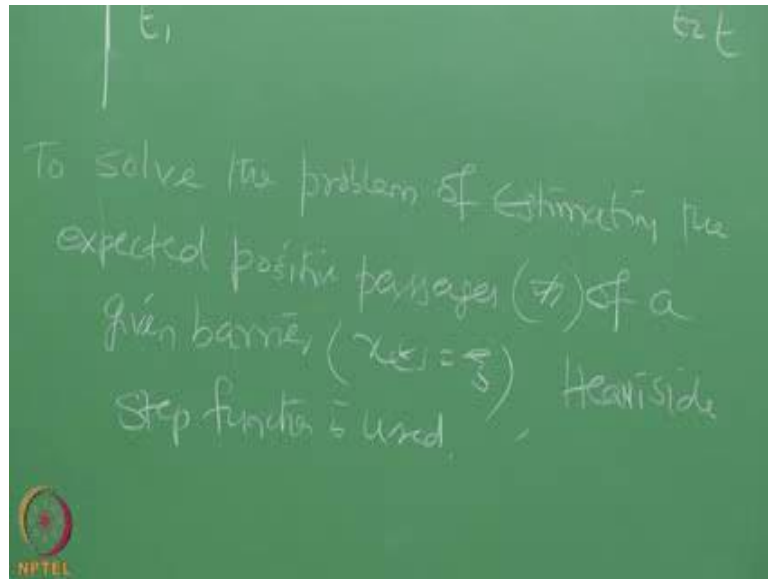 t₁ t₂ t
To solve the problem of Estimating the
expected positive passages (#) of a
given barrier (x(t) = ξ) Heaviside
step function is used.
NPTEL